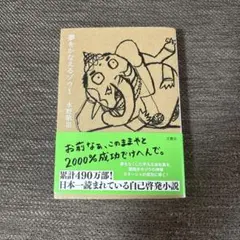 夢をかなえるゾウ1
水野敬也
文響社
お前なぁ、このままやと
2000%成功でけへんで。
累計490万部!
日本一読まれている自己啓発小説